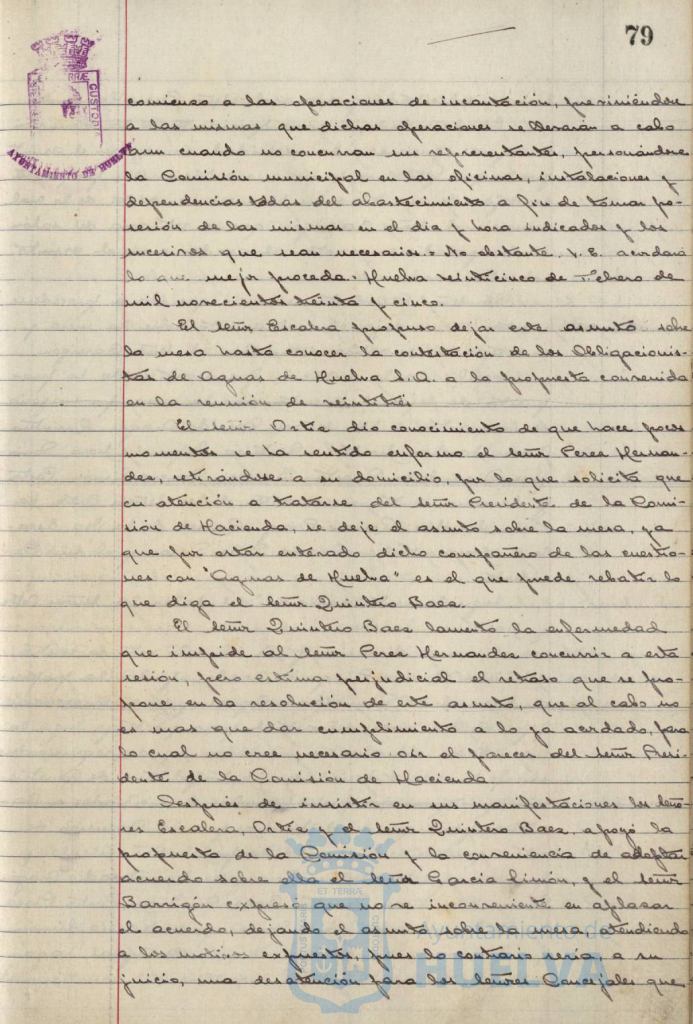 79
comienzo a las operaciones de incautación, previniéndose
a las mismas que dichas operaciones se llevarán a cabo
aun cuando no concurran sus representantes, personándose
la Comisión municipal en las oficinas, instalaciones y
dependencias todas del abastecimiento a fin de tomar po-
sesión de las mismas en el dia y hora indicados y los
sucesivos que sean necesarios.= No obstante V. E. acordará
lo que mejor proceda.= Huelva veinticinco de Febrero de
mil novecientos treinta y cinco.
El señor Escalera propuso dejar este asunto sobre
la mesa hasta conocer la contestación de los Obligacionis-
tas de Aguas de Huelva S.A. a la propuesta convenida
en la reunión de veintitrés
El señor Ortiz dio conocimiento de que hace pocos
momentos se ha sentido enfermo el señor Perez Hernan-
dez, retirándose a su domicilio, por lo que solicita que
en atención a tratarse del señor Presidente de la Comi-
sión de Hacienda, se deje el asunto sobre la mesa, ya
que por estar enterado dicho compañero de las cuestio-
nes con "Aguas de Huelva" es el que puede rebatir lo
que diga el señor Quintero Baez.
El señor Quintero Baez lamentó la enfermedad
que impide al señor Perez Hernandez concurrir a esta
sesión, pero estima perjudicial el retraso que se pro-
pone en la resolución de este asunto, que al cabo no
es mas que dar cumplimiento a lo ya acordado, para
lo cual no cree necesario oir el parecer del señor Presi-
dente de la Comisión de Hacienda
Después de insistir en sus manifestaciones los seño-
res Escalera, Ortiz y el señor Quintero Baez, apoyó la
propuesta de la Comisión y la conveniencia de adoptar
acuerdo sobre ella el señor García Limón, y el señor
Barrigón expresó que no ve inconveniente en aplazar
el acuerdo, dejando el asunto sobre la mesa, atendiendo
a los motivos expuestos, pues lo contrario sería, a su
juicio, una desatención para los señores Concejales que
Ayuntamiento de
HUELVA